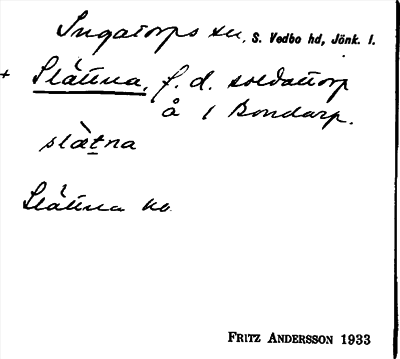 Ingatorps sn, S. Vedbo hd, Jönk. l.
+ Slättna, f. d. soldattorp
å 1 Bondarp.
slàtna
Slättna kb
FRITZ ANDERSSON 1933